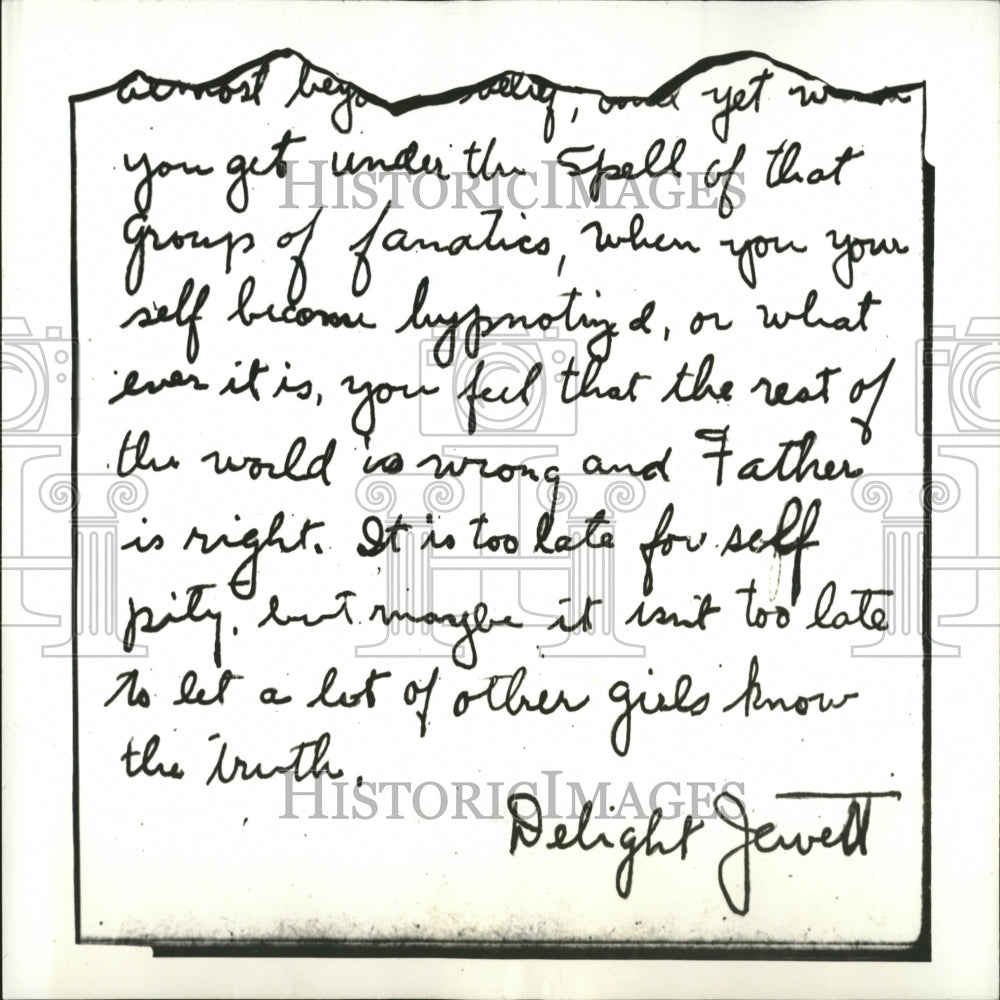 almost beyond belief, and yet when
you get under the spell of that
Group of fanatics, when you your
self become hypnotized, or what
ever it is, you feel that the rest of
the world is wrong and Father
is right. It is too late for self
pity, but maybe it isn't too late
to let a lot of other girls know
the truth.
Delight Jewett
HISTORICIMAGES
HISTORICIMAGES